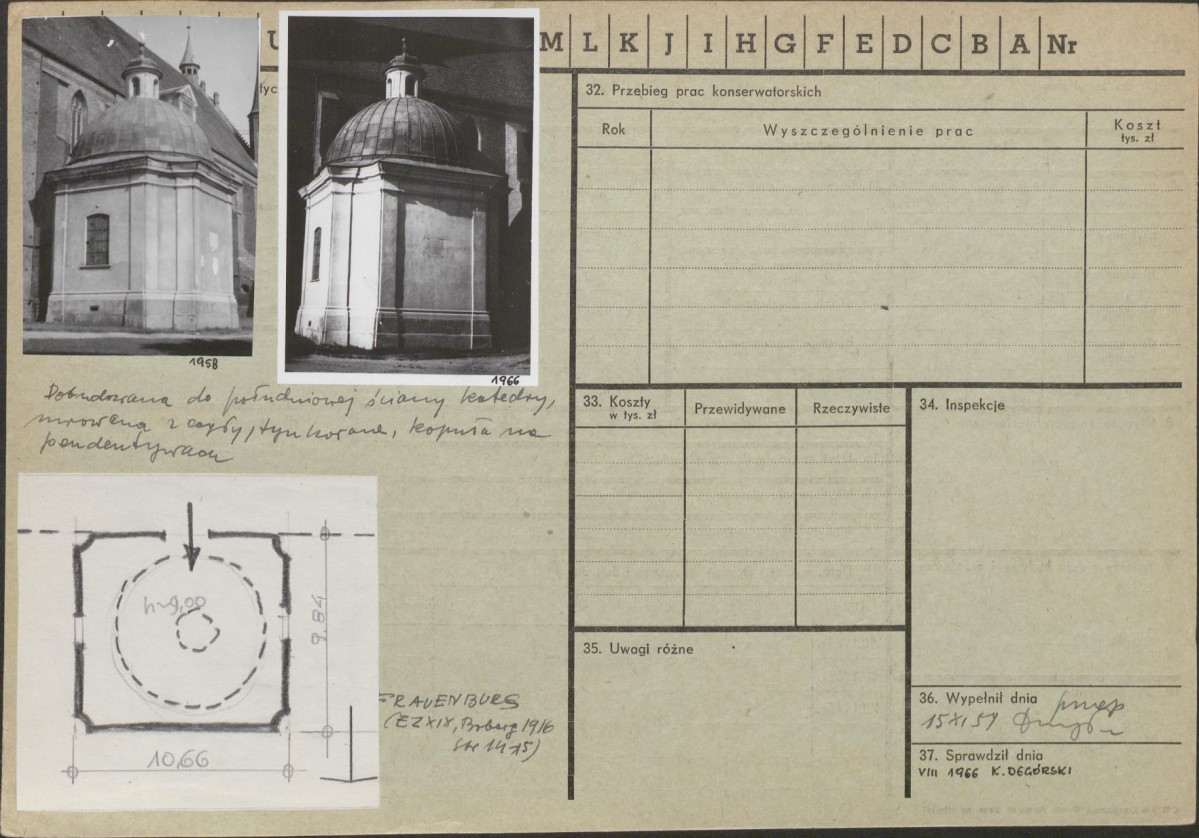 U M L K J I H G F E D C B A Nr
32. Przebieg prac konserwatorskich
Rok
Wyszczególnienie prac
Koszt
tys. zł
1958
1966
Dobudowana do południowej ściany katedry,
murowana z cegły, tynkowana, kopuła na
pendentywach
33. Koszty
w tys. zł
Przewidywane
Rzeczywiste
34. Inspekcje
h~9,00
9.84
10,66
FRAUENBURG
(EZ XIX, Boberg 1916
str 14-15)
35. Uwagi różne
36. Wypełnił dnia
15 XI 59
37. Sprawdził dnia
VIII 1966 K. DEGÓRSKI